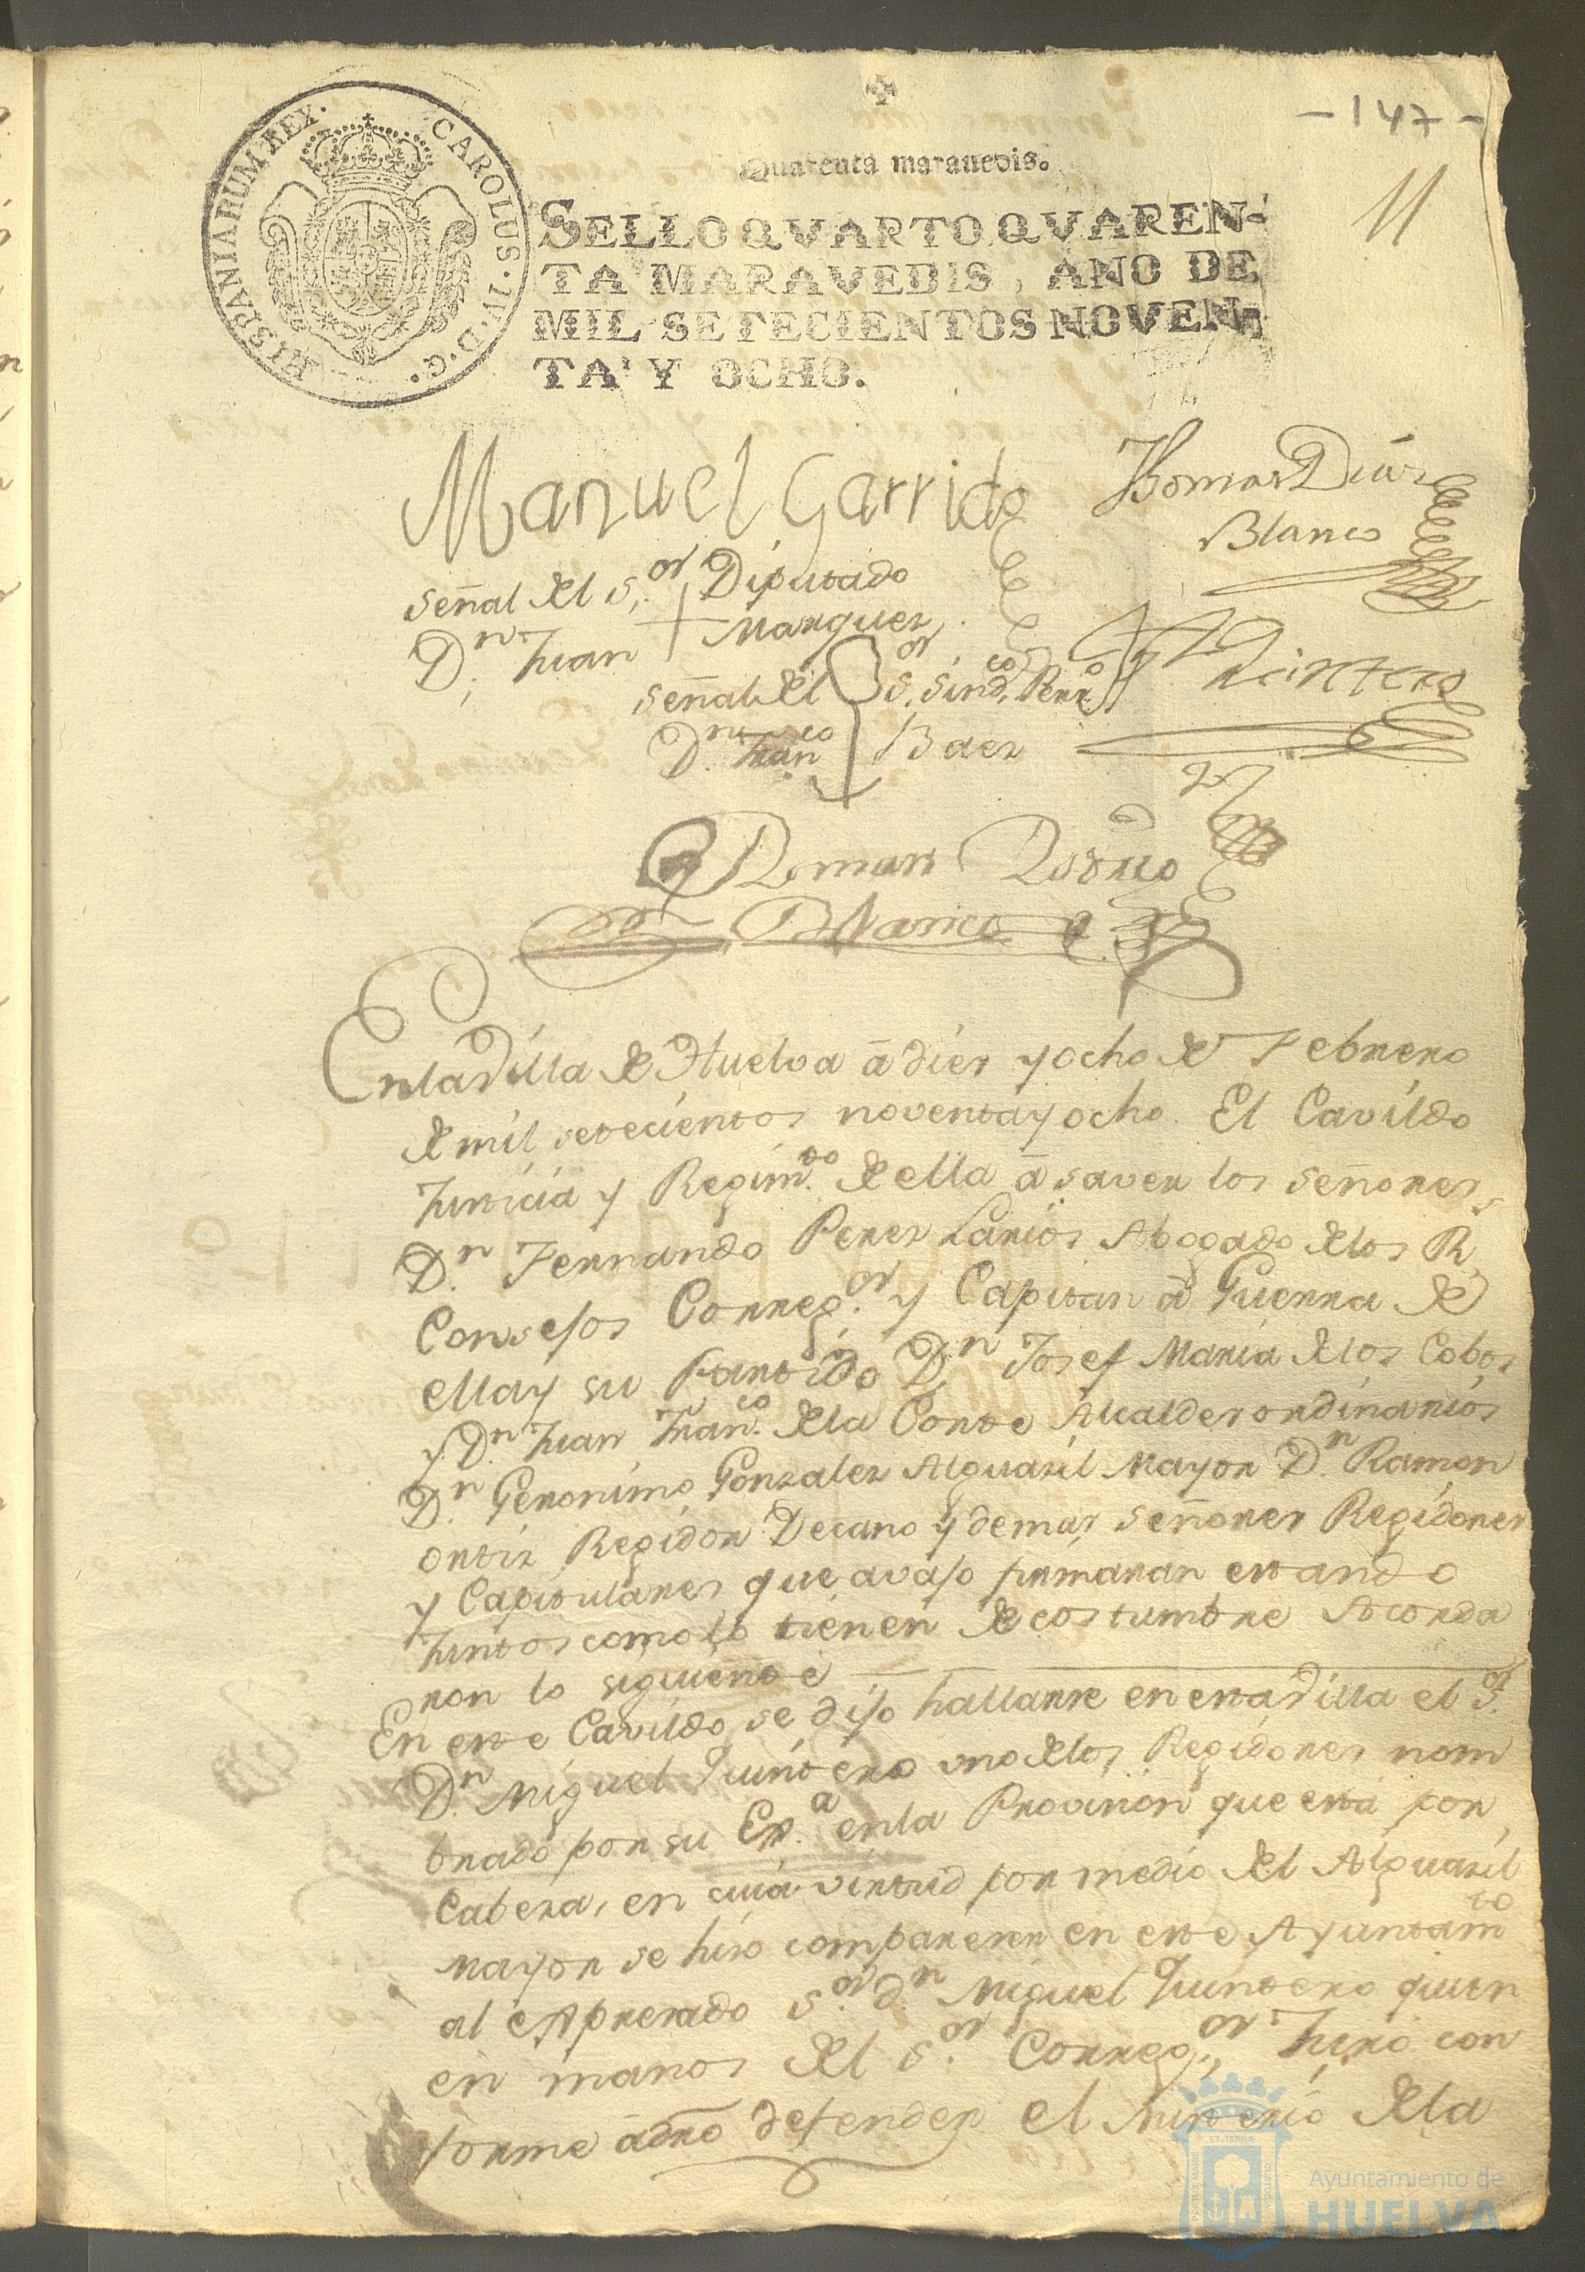 - 147 -
11
Quarenta maravedis.
HISPANIARUM REX · CAROLUS · IV · D · G ·
SELLO QVARTO, QVAREN-
TA MARAVEDIS, AÑO DE
MIL SETECIENTOS NOVEN-
TA Y OCHO.
Manuel Garrido
Thomas Dias
Blanco
señal del S.or Diputado
D.n Juan + Marquez
Quintero
señal del S.or Sind.co Perz.o
D.n Fran.co Baez
Blanco
En la Villa de Huelva â diez y ocho de Febrero
de mil setecientos noventa y ocho. El Cavildo
Justicia y Regim.to de ella â saver los señores
D.n Fernando Perez Larios Abogado de los R.s
Consejos Correg.or y Capitan â Guerra de
ella y su Partido D.n Josef Maria de los Cobos
y D.n Juan Fran.co de la Corte Alcaldes ordinarios
D.n Geronimo Gonzalez Alguazil Mayor D.n Ramon
Ortiz Regidor Decano y demas señores Regidores
y Capitulares que avajo firmaran estando
Juntos como lo tienen de costumbre Acorda
ron lo siguiente
En este Cavildo se dijo hallarse en esta Villa el S.or
D.n Miguel Quintero uno de los Regidores nom
brado por su Ex.a en la Provision que está por
Cabeza, en cuia virtud por medio del Alguazil
mayor se hizo comparecer en este Ayuntam.to
al expresado S.or d.n Miguel Quintero quien
en manos del S.or Correg.or Juró con
forme âdro defender el Misterio de la
Ayuntamiento de
HUELVA